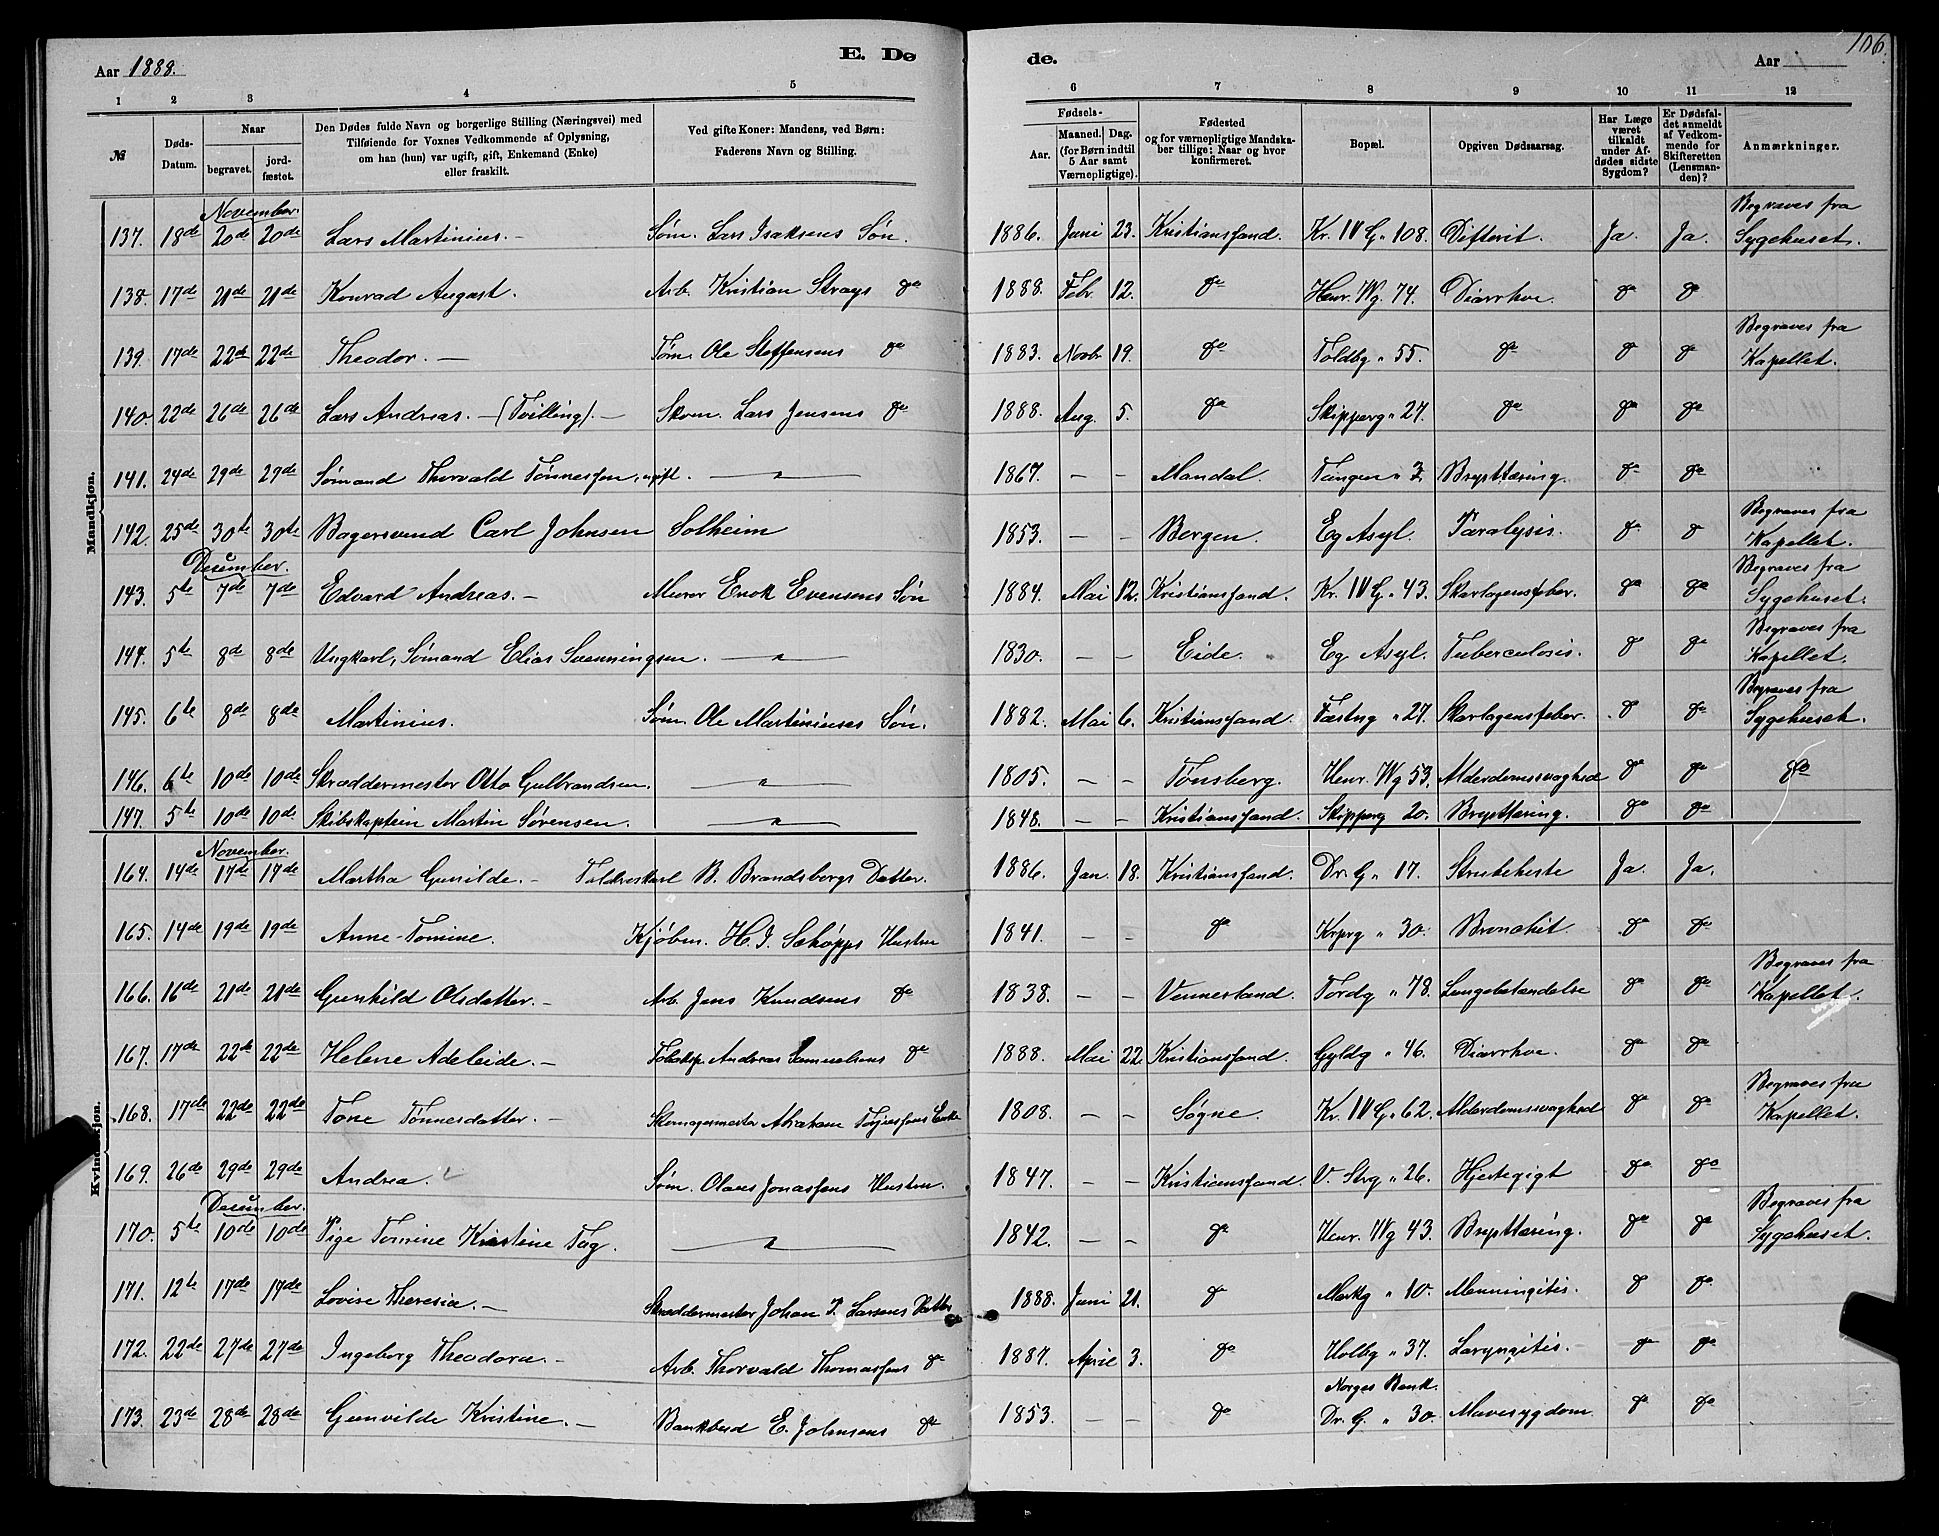 Aar 1888.
E. Dø
de.
Aar
106.
1 2 3 4 5 6 7 8 9 10 11 12
№
Døds-Datum.
Naar
begravet.
jordfæstet.
Den Dødes fulde Navn og borgerlige Stilling (Næringsvei) med
Tilføiende for Voxnes Vedkommende af Oplysning,
om han (hun) var ugift, gift, Enkemand (Enke)
eller fraskilt.
Ved gifte Koner: Mandens, ved Børn:
Faderens Navn og Stilling.
Fødsels-
Aar.
Maaned. Dag.
(for Børn indtil
5 Aar samt
Værnepligtige).
Fødested
og for værnepligtige Mandska-
ber tillige: Naar og hvor
konfirmeret.
Bopæl.
Opgiven Dødsaarsag.
Har Læge
været
tilkaldt
under Af-
dødes sidste
Sygdom?
Er Dødsfal-
det anmeldt
af Vedkom-
mende for
Skifteretten
(Lensman-
den)?
Anmærkninger.
Mandkjøn.
November.
137. 18de 20de 20de Lars Martinius. – Søm. Lars Isaksens Søn. 1886. Juni 23. Kristianssand. Kr. IV G. " 108. Difterit. Ja. Ja. Begraves fra Sygehuset.
138. 17de 21de 21de Konrad August. Arb. Kristian Strays do 1888. Febr. 12. do Henr. Wg. 74. Diarrhoe. do do
139. 17de 22de 22de Theodor. – Tøm. Ole Steffensens do 1883. Novbr. 19. do Toldbg " 55. do do do Begraves fra Kapellet.
140. 22de 26de 26de Lars Andreas. – (Tvilling). – Skom. Lars Jensens do 1888. Aug. 5. do Skipperg " 27. do do do
141. 24de 29de 29de Sømand Thorvald Tønnessen, ugift. – " – 1867. – – Mandal. Tangen " 3. Brysttæring. do do
142. 25de 30te 30te Bagersvend Carl Johnsen Solheim 1853. – – Bergen. Eg Asyl. Paralysis. do do Begraves fra Kapellet.
December.
143. 5te 7de 7de Edvard Andreas. – Murer Enok Evensens Søn 1884. Mai 12. Kristianssand. Kr. IV G. " 43. Skarlagensfeber. do do Begraves fra Sygehuset.
144. 5te 8de 8de Ungkarl, Sømand Elias Svenningsen. – " – 1830. – – Eide. Eg Asyl. Tuberculosis. do do Begraves fra Kapellet.
145. 6te 8de 8de Martinius. Søm. Ole Martiniuses Søn. 1882. Mai 6. Kristianssand. Fæstng " 27. Skarlagensfeber. do do Begraves fra Sygehuset.
146. 6te 10de 10de Skræddermester Otto Gulbrandsen. – " – 1805. – – Tønsberg. Henr. Wg 53. Alderdomssvaghed do do do
147. 5te 10de 10de Skibskaptein Martin Sørensen. – " – 1848. – – Kristianssand. Skipperg 20. Brysttæring. do do
Kvindekjøn.
November.
164. 14de 17de 17de Martha Gunilde. – B. Brandsbergs Datter. 1886. Jan. 18. Kristianssand. Dr. G. " 17. Strubehoste Ja. Ja.
165. 14de 19de 19de Anne Tomine. Kjøbm. H. J. Schøpps Hustru 1841. – – do Krprg " 30. Bronchit. do do
166. 16de 21de 21de Gunhild Olsdatter. – Arb. Jens Knudsens do 1838. – – Vennesland. Tordg " 78. Lungebetændelse do do Begraves fra Kapellet.
167. 17de 22de 22de Helene Adeleide. – Andreas Samuelsens do 1888. Mai 22. Kristianssand. Gyldg " 46. Diarrhoe. do do
168. 17de 22de 22de Tone Tønnesdatter. – Skomagermester Abraham Torjussens Enke 1808. – – Søgne. Kr. IV G. " 62. Alderdomssvaghed do do Begraves fra Kapellet.
169. 26de 29de 29de Andrea. Søm. Olaves Jonassens Hustru. 1847. – – Kristianssand. V. Strg " 26. Hjertegigt do do
December.
170. 5te 10de 10de Pige Tomine Kirstine Fag. – " – 1842. – – do Henr. Wg 43. Brysttæring. do do Begraves fra Sygehuset.
171. 12te 17de 17de Lovise Theresia. – Skræddermester Johan P. Larsens Datter 1888. Juni 21. do Markg " 10. Menningitis. do do
172. 22de 27de 27de Ingeborg Theodora. – Arb. Thorvald Thomassens do 1887. April 3. do Holbg " 37. Laryngitis. – do do
173. 23de 28de 28de Gunvilde Kristine. – Bankbud E. Johnsens do 1853. – – do Norges Bank. Dr. G. " 30. Mavesygdom. do do